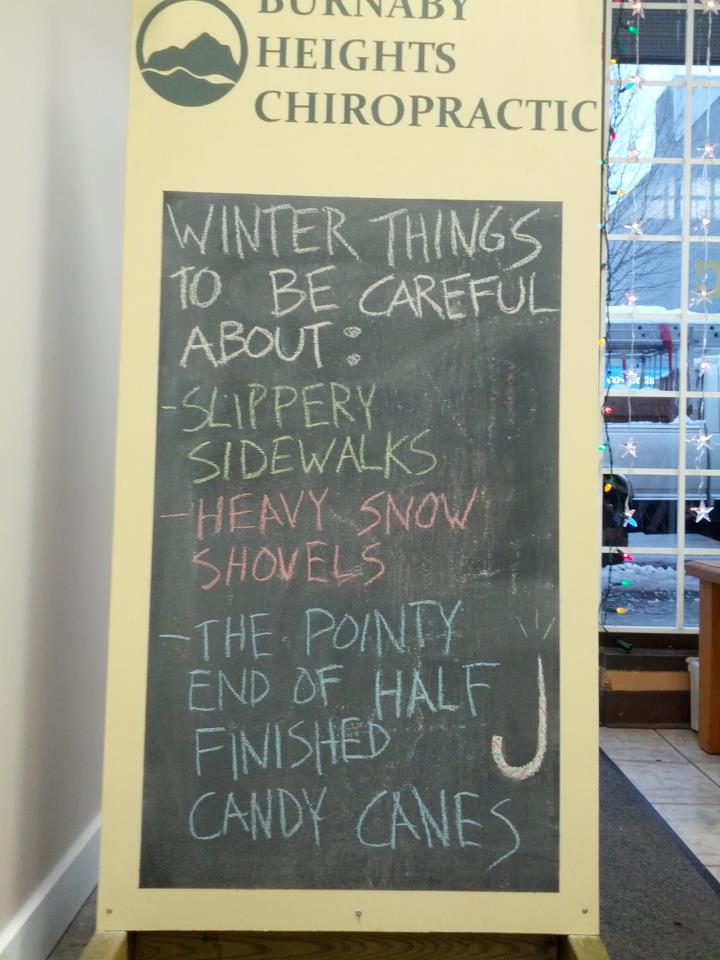 BURNABY
HEIGHTS
CHIROPRACTIC
WINTER THINGS
TO BE CAREFUL
ABOUT:
-SLIPPERY
SIDEWALKS
-HEAVY SNOW
SHOVELS
-THE POINTY
END OF HALF
FINISHED
CANDY CANES